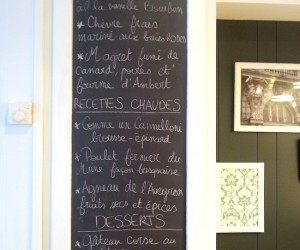 de la vanille Bourbon
* Chèvre frais
mariné aux baies Roses
* Magret fumé de
canard, poires et
fourme d'Ambert
RECETTES CHAUDES
* Comme un Cannelloni
brousse-épinard
* Poulet fermier du
façon basquaise
* Agneau de l'Aveyron
fruits secs et épices
DESSERTS
* Gâteau corse au